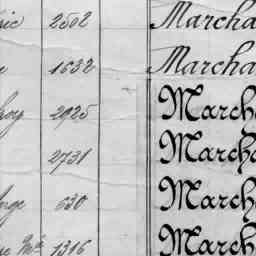 ric 2502 Marcha
e 1632 Marcha
hoy 2925 March
2731 March
nge 630 March
ue Mde 1316 March